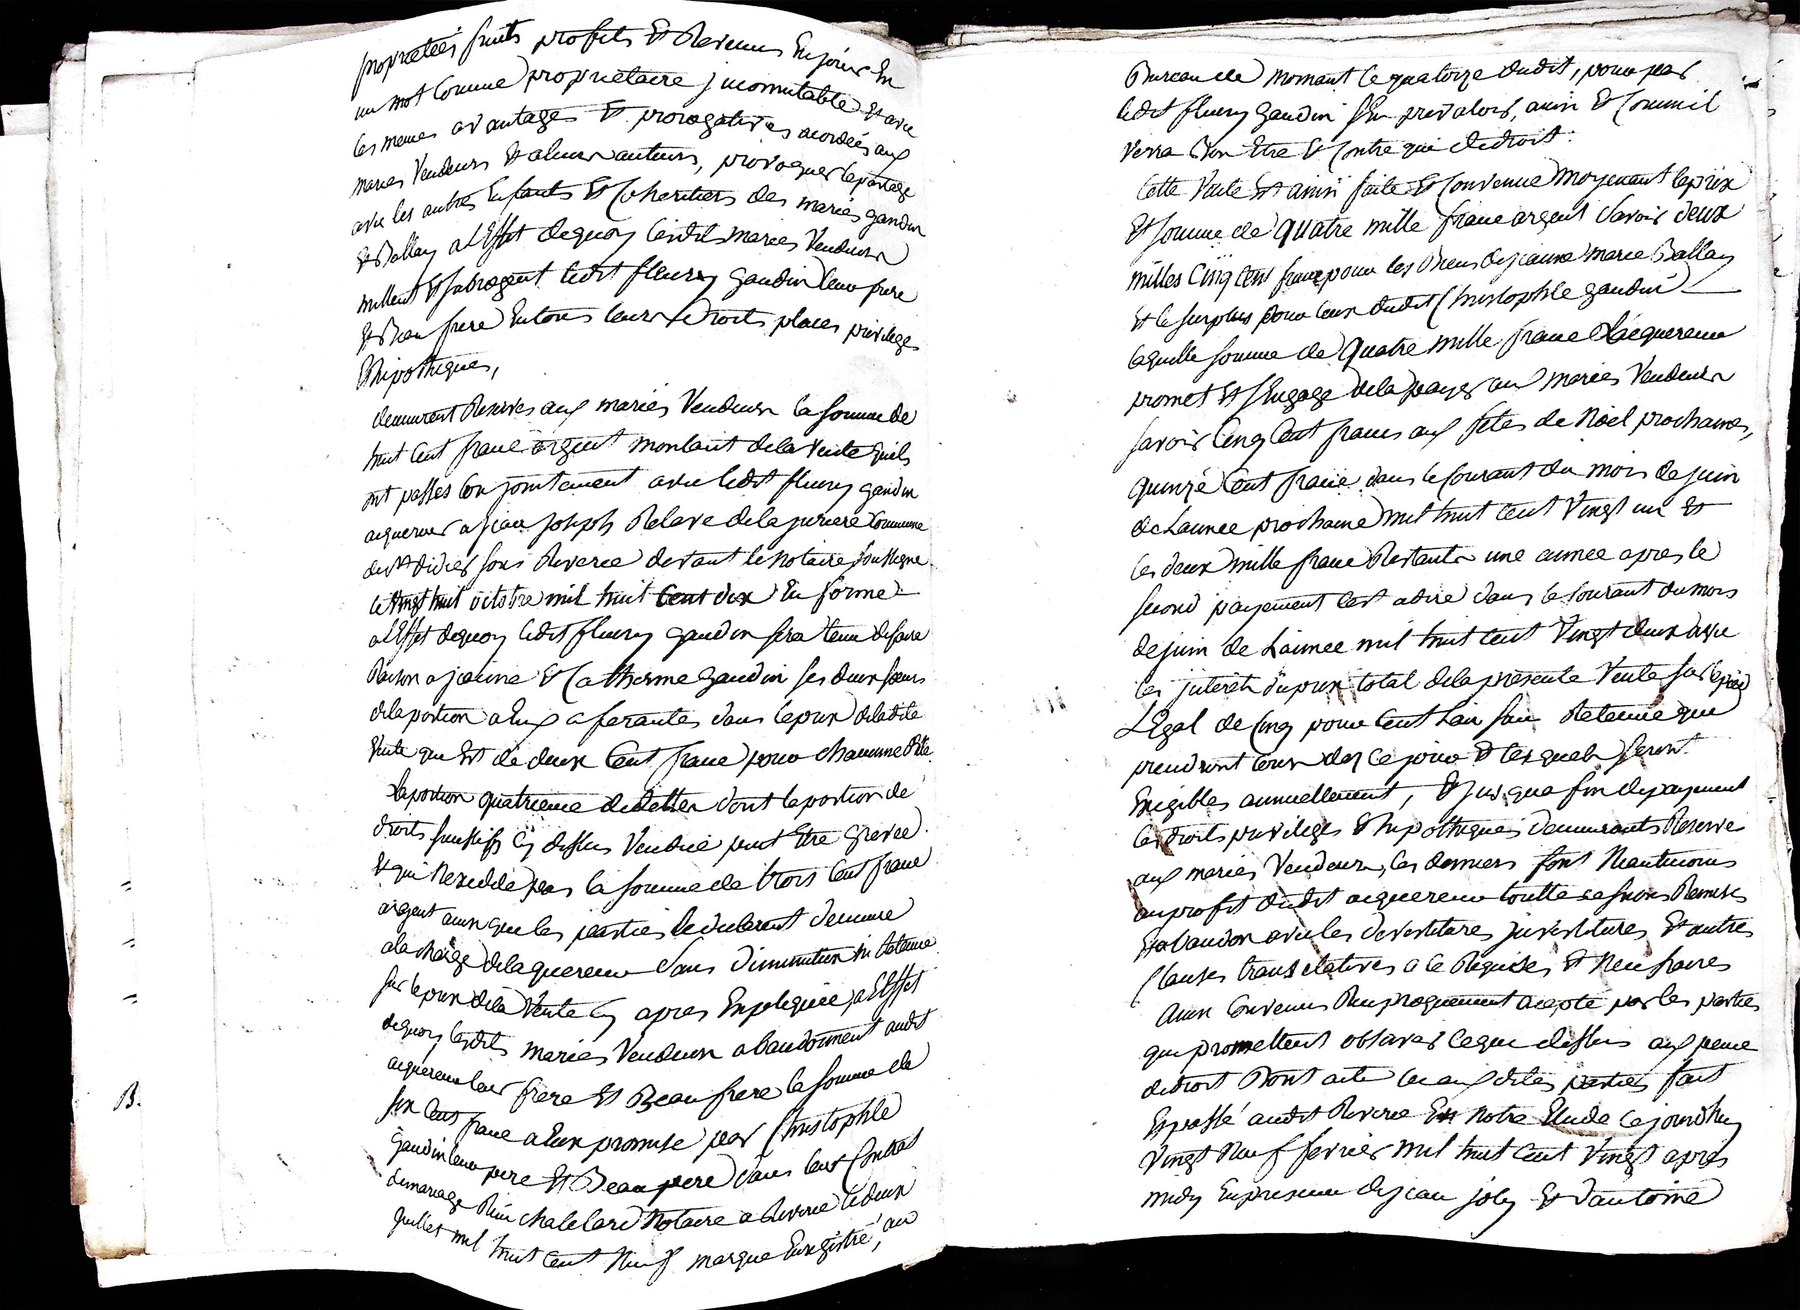 proprietées fruits profits et Revenus En jouir En
un mot Comme proprietaire jncommutable et avec
les memes avantages et prorogatives acordées aux
mariés Vendeurs et a leurs auteurs, provoquer le partage
avec les autres Enfants et Coheritiers des mariés gaudin
et Ballay a lEffet dequoy lesdits mariés Vendeurs
mettent et subrogent ledit fleury Gaudin leur frere
et Beau frere En tous leurs Droits places privileges
Et hipotheques,
demeurent Reservés aux mariés Vendeurs la somme de
huit Cent franc argent montant de la Vente quils
ont passés Conjointement avec ledit fleury gaudin
aquereur a jean joseph Relave de la jurieré Commune
de st didier sous Riverie devant le Notaire soussigné
le Vingt huit octobre mil huit Cent dix En forme
a lEffet dequoy ledit fleury gaudin sera tenu de faire
Raison a jeanne et Catherine gaudin ses deux sœurs
de la portion a Eux aferantes dans le prix de ladite
Vente qui Est de deux Cent franc pour chacunne dElle
La portion quatrieme de dettes dont la portion de
droits susdits Cy dessus Vendue peut Etre grevée
et qui Nexcede pas la somme de trois Cent franc
argent ainsi que les parties le declarent demeure
a la charge de laquereur sans diminution ni Retenue
sur le prix de la Vente Cy apres Expliquée, a lEffet
dequoy lesdits mariés Vendeurs abandonnent audit
aquereur leur frere et Beau frere la somme de
six Cent franc a Eux promise par Christophle
Gaudin leur pere et Beau pere dans leur Contrat
de mariage Reçu chalelard Notaire a Riverie le deux
juillet mil huit Cent Neuf marque Enregistré, au
B.
Bureau de mornant le quatorze dudit, pour par
ledit fleury gaudin sEn prevaloir, ainsi et Comme il
verra Bon Etre et Contre qui de droit.
Cette Vente Est ainsi faite et Convenue moyenant le prix
et somme de quatre mille franc argent savoir deux
milles Cinq Cent franc pour les Biens de jeanne marie Ballay
et le surplus pour Ceux dudit Christophle gaudin
laquelle somme de quatre mille franc Laquereur
promet et sEngage de la payer aux mariés Vendeurs
savoir Cinq Cent francs aux fetes de Noël prochaines,
quinze Cent franc dans le Courant du mois de juin
de Lannée prochaine mil huit Cent Vingt un et
les deux mille franc Restants une année apres le
second payement Cest a dire dans le Courant du mois
de juin de Lannée mil huit Cent Vingt deux avec
les jnterets du prix total de la presente Vente sur le pied
Legal de Cinq pour Cent Lan sans Retenue qui
prendront Cours des ce jour et lesquels seront
Exigibles annuellement, et jusqua fin de payement
les droits privileges et hipotheques demeurants Reservés
aux mariés Vendeurs, les derniers font Neantmoins
au profit dudit aquereur toutte cessions Remises
et abandon avec les devestitures jnvestitures et autres
Clauses translatives a ce Requises et Necessaires
Ainsi Convenu Reciproquement acepté par les parties
qui promettent observer ce que dessus aux peine
de droit Dont acte ce aux dites parties fait
Et passé audit Riverie En Notre Etude Cejourdhuy
Vingt Neuf fevrier mil huit Cent Vingt apres
midy En presence de jean joly et dantoine